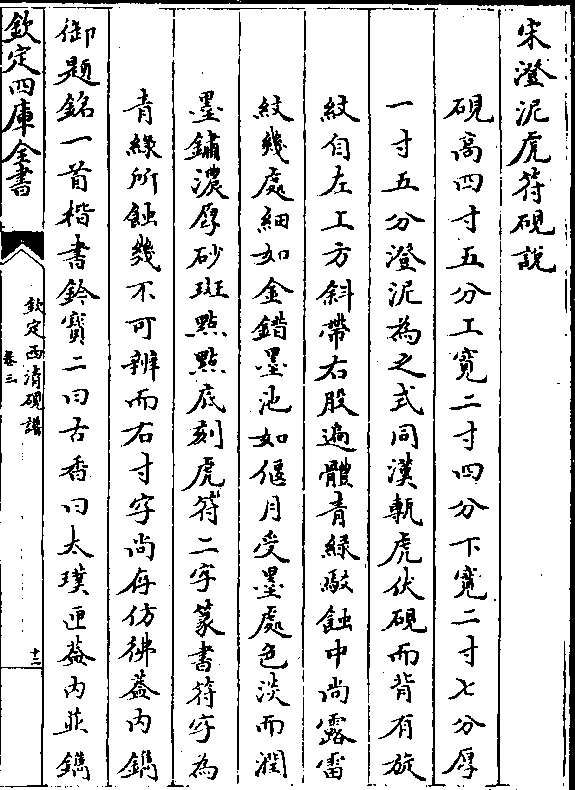 宋澄泥虎符硯說
硯高四寸五分上寬二寸四分下寬二寸七分厚
一寸五分澄泥為之式同漢甎虎伏硯而背有旋
紋自左上方斜帶右股遍體青緑駁蝕中尚露雷
紋幾處細如金錯墨池如偃月受墨處色淡而潤
墨鏽濃厚砂斑點點底刻虎符二字篆書符字為
青緑所蝕幾不可辨而右寸字尚存仿彿蓋内鐫
御題銘一首楷書鈐寶二曰古香曰太璞匣蓋内並鐫
欽定四庫全書
欽定西清硯譜
卷三
十二